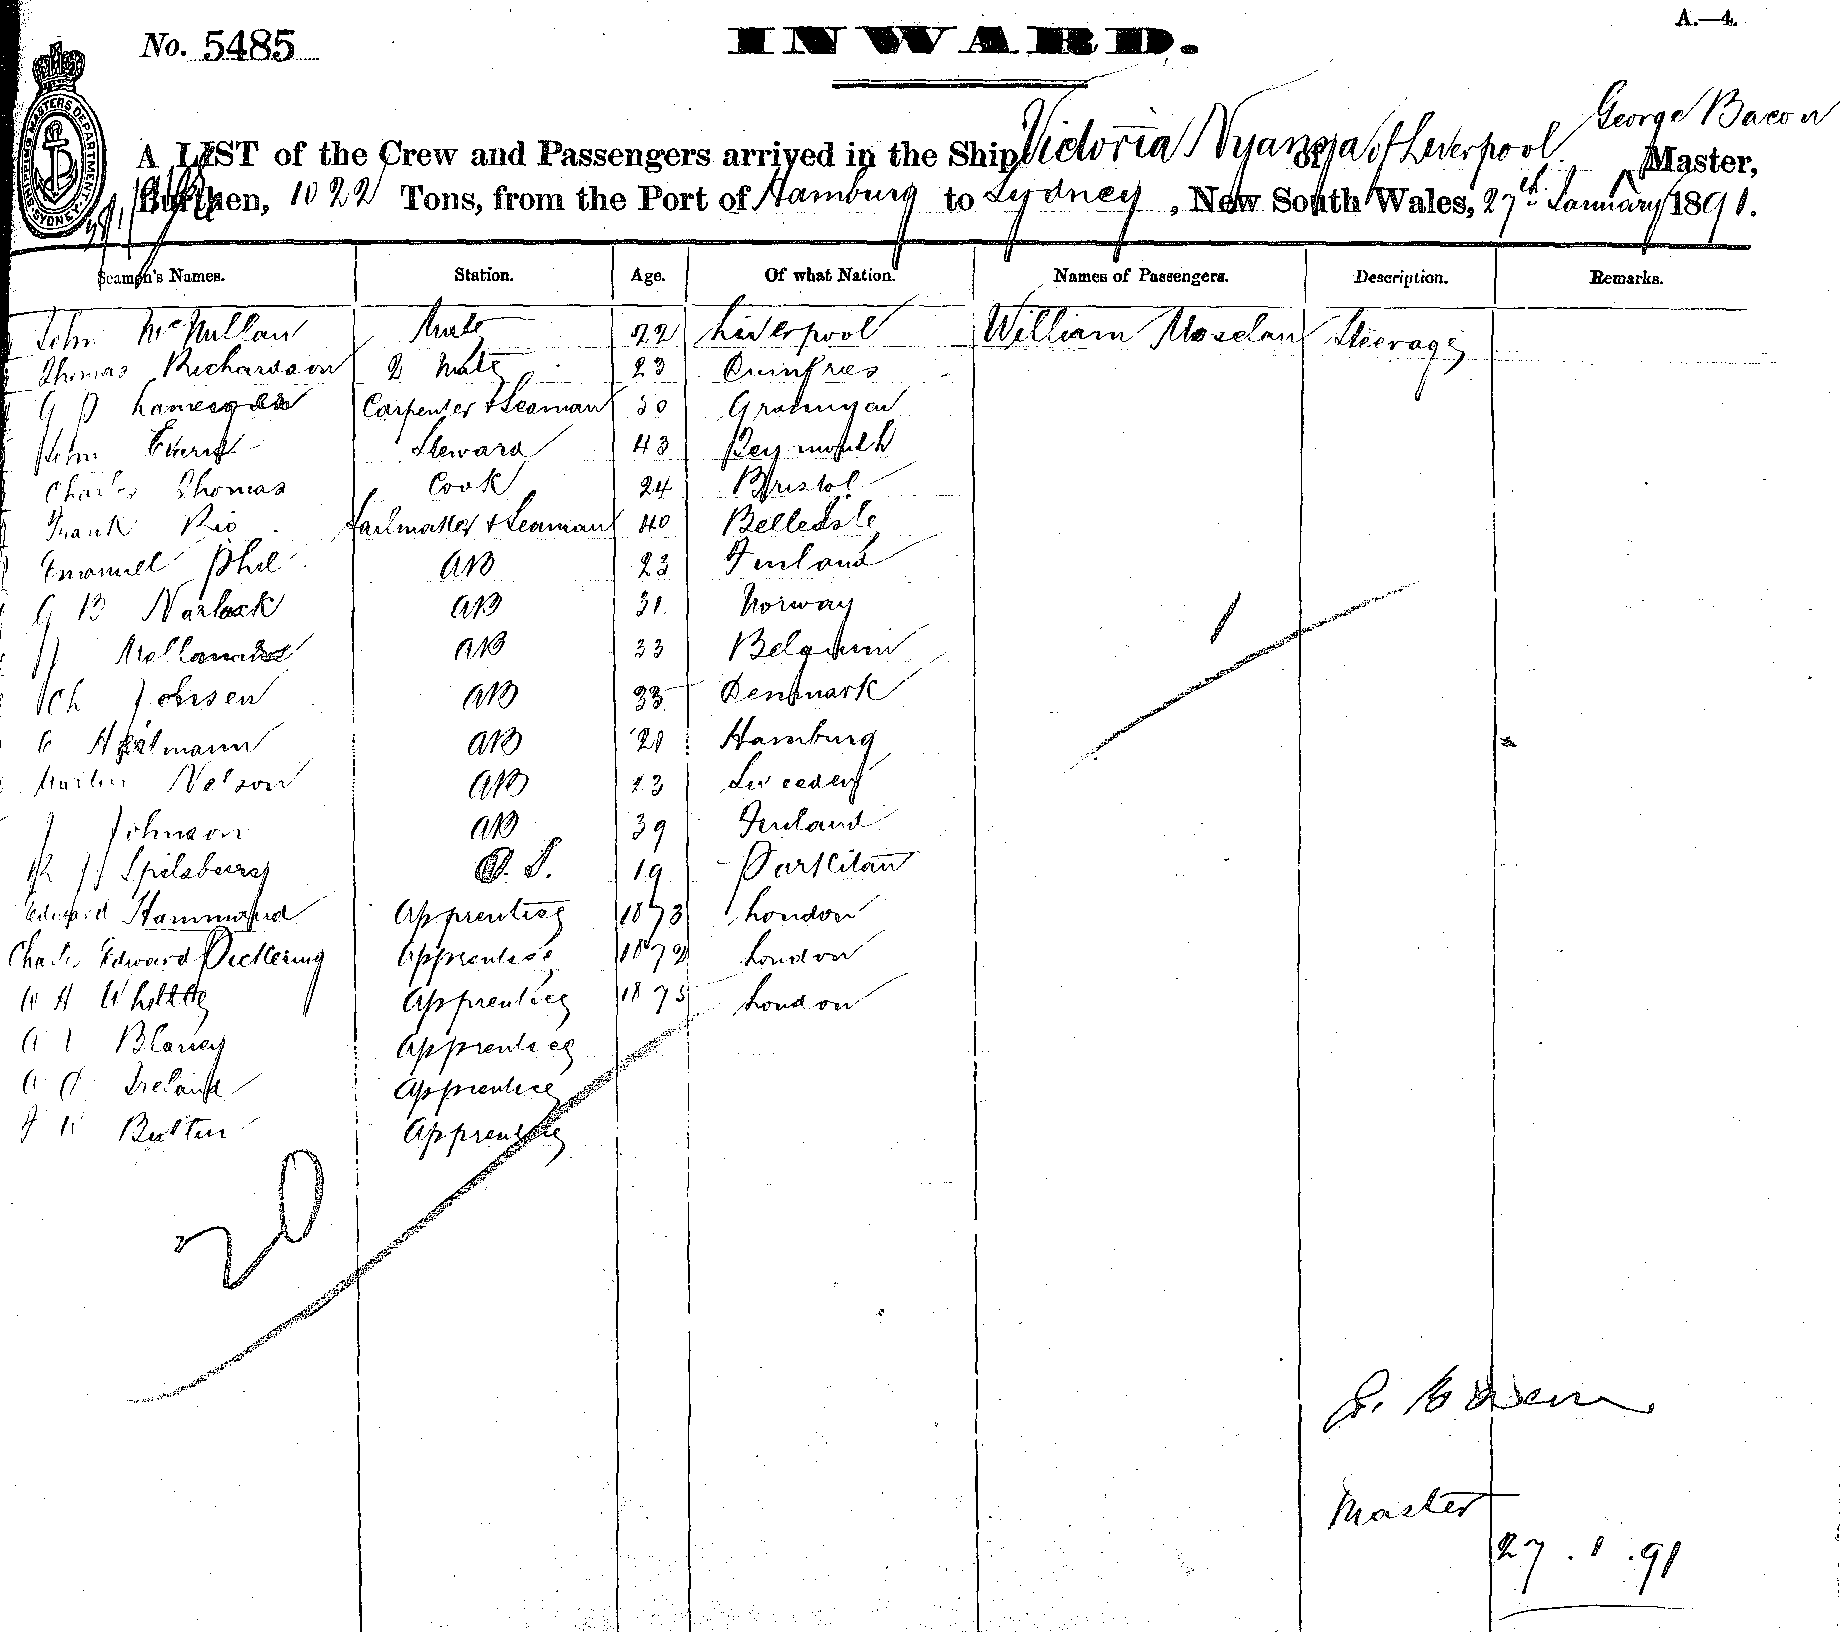 A.—4.
No. 5485
INWARD.
George Bacon
A LIST of the Crew and Passengers arrived in the Ship Victoria Nyanza of Liverpool Master,
Burthen, 1022 Tons, from the Port of Hamburg to Sydney, New South Wales, 27th January 1891.
SHIPPING MASTERS DEPARTMENT SYDNEY
Seamen's Names. Station. Age. Of what Nation. Names of Passengers. Description. Remarks.
John McMullan Mate 22 Liverpool William Moselan Steerage
Thomas Richardson 2 Mate 23 Dumfries
G P Carpenter & Seaman 30 Groningen
John Steward 43 Weymouth
Charles Thomas Cook 24 Bristol
Frank Rio Sailmaker & Seaman 40 Belleisle
Emanuel Phil AB 23 Finland
G B Narlock AB 31 Norway
AB 33 Belgium
Ch Johsen AB 33 Denmark
Heilmann AB 21 Hamburg
Martin Nelson AB 23 Sweeden
J Johnson AB 39 Finland
R H Spilsbury O.S. 19
Edward Hammond Apprentice 1873 London
Charles Edward Pickering Apprentice 1872 London
W H Whittle Apprentice 1875 London
Blaney Apprentice
Ireland Apprentice
Button Apprentice
1
20
G. Bacon
Master
27.1.91